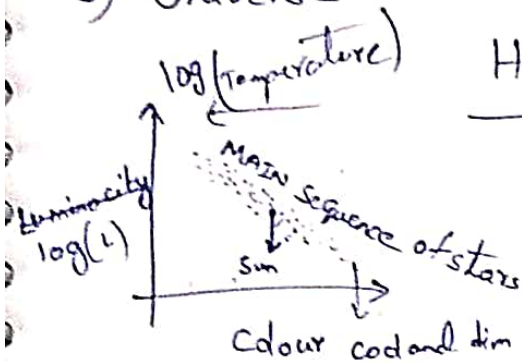 log(Temperature)
H
MAIN Sequence of stars
Luminocity
log(L)
Sun
Colour cod and dim